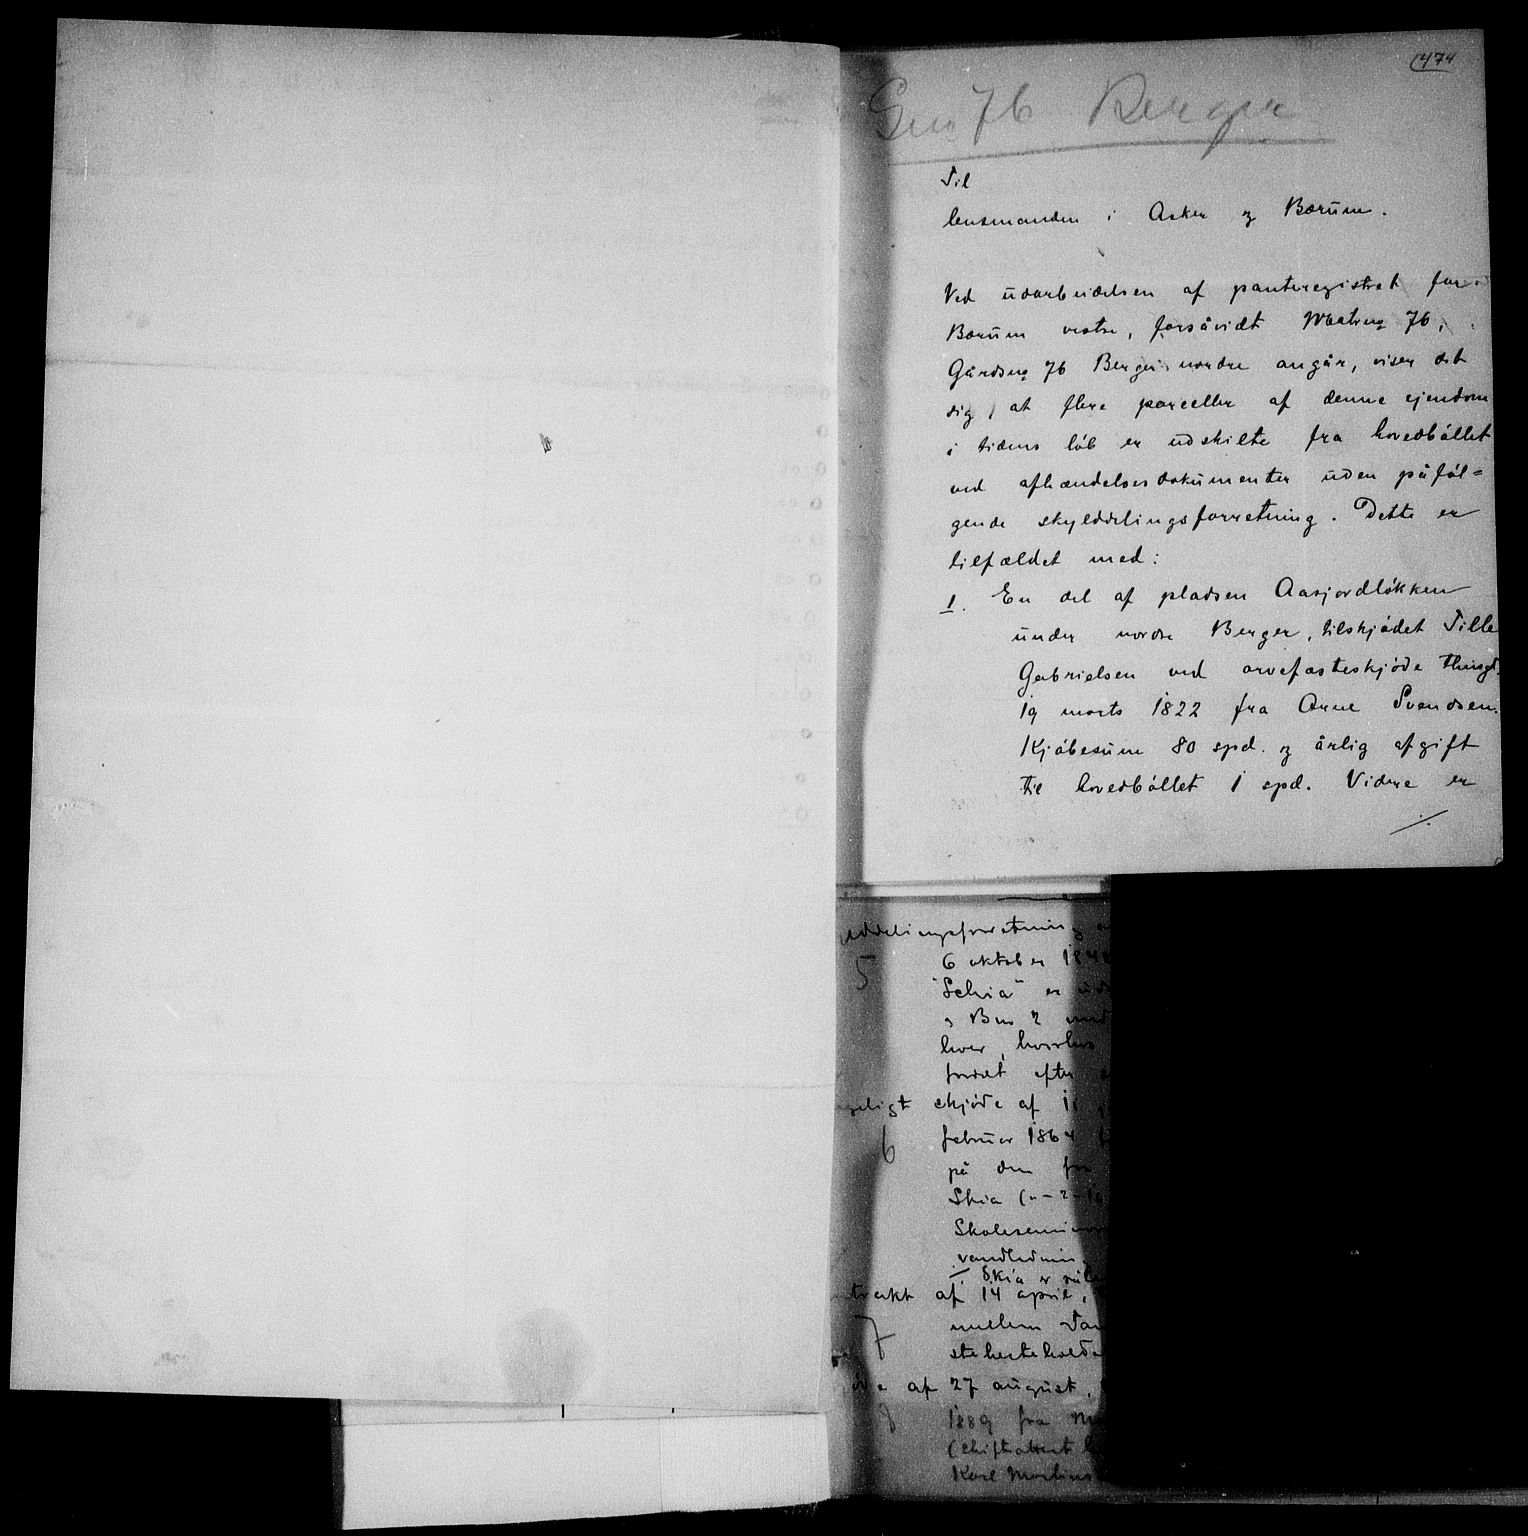 474
Gno 76 Berger
Til
lensmanden i Asker og Bærum.
Ved udarbeidelsen af panteregistret for
Bærum vestre, forsåvidt Matrno 76,
Gårdsno 76 Berger nordre angår, viser det
sig, at flere parceller af denne ejendom
i tidens løb er udskilte fra hovedbøllet
ved afhændelsesdokumenter uden påføl=
gende skylddelingsforretning. Dette er
tilfældet med:
1. En del af pladsen Aasjordløkken
under nordre Berger, tilskjødet Tille
Gabrielsen ved arvefæsteskjøde thingl.
19 marts 1822 fra Arne Svendsen.
Kjøbesum 80 spd. og årlig afgift
til hovedbøllet 1 spd. Videre er
./.
6 oktober
5
"Schia" er
og Bno 2 med
hver, hvorhos
efter
skjøde af
februar 1864
6
på den
Skia
Skolesemi
vandlednin
Skia er
af 14 april,
mellem
7
af 27 august,
8
1889 fra
Karl Martins